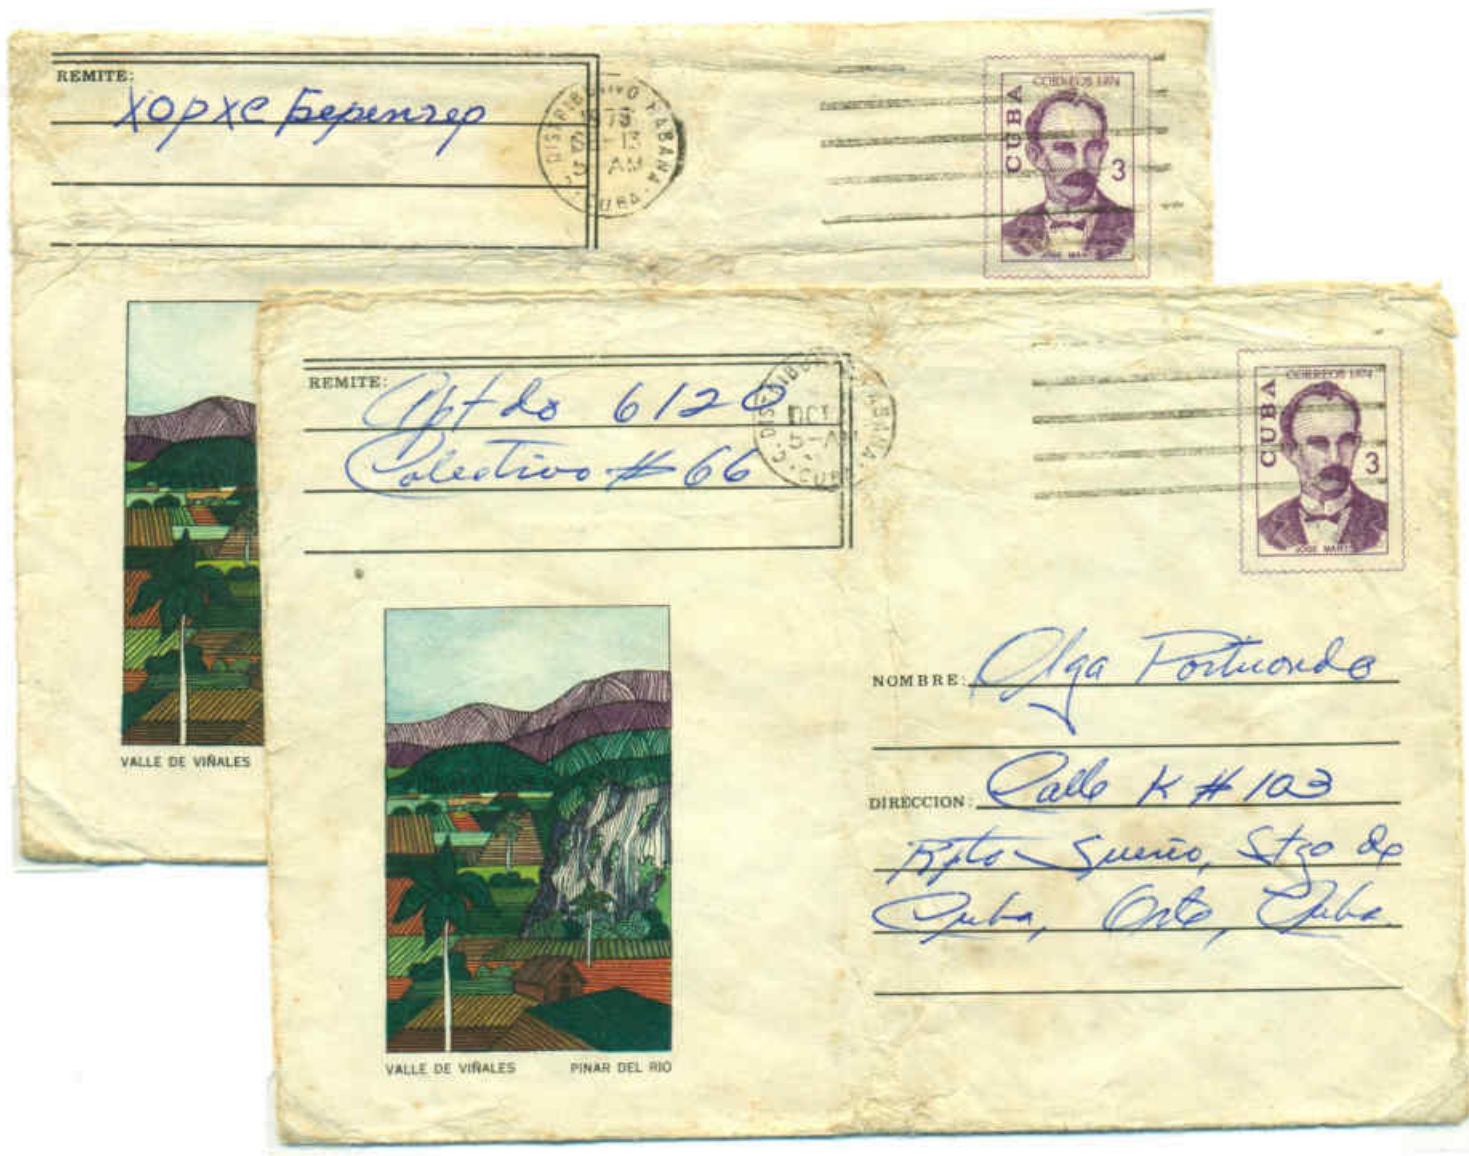 REMITE:
Хорхе Беренгер
DISTRIBUTIVO HABANA
75
-13
AM
CUBA
CORREOS 1974
CUBA
3
JOSE MARTI
VALLE DE VIÑALES
REMITE:
Aptdo 6120
Colectivo # 66
OCT
5-AM
CORREOS 1974
CUBA
3
JOSE MARTI
NOMBRE: Olga Portuondo
DIRECCION: Calle K # 103
Rpto Sueño, Stgo de
Cuba, Ote, Cuba.
VALLE DE VIÑALES PINAR DEL RIO